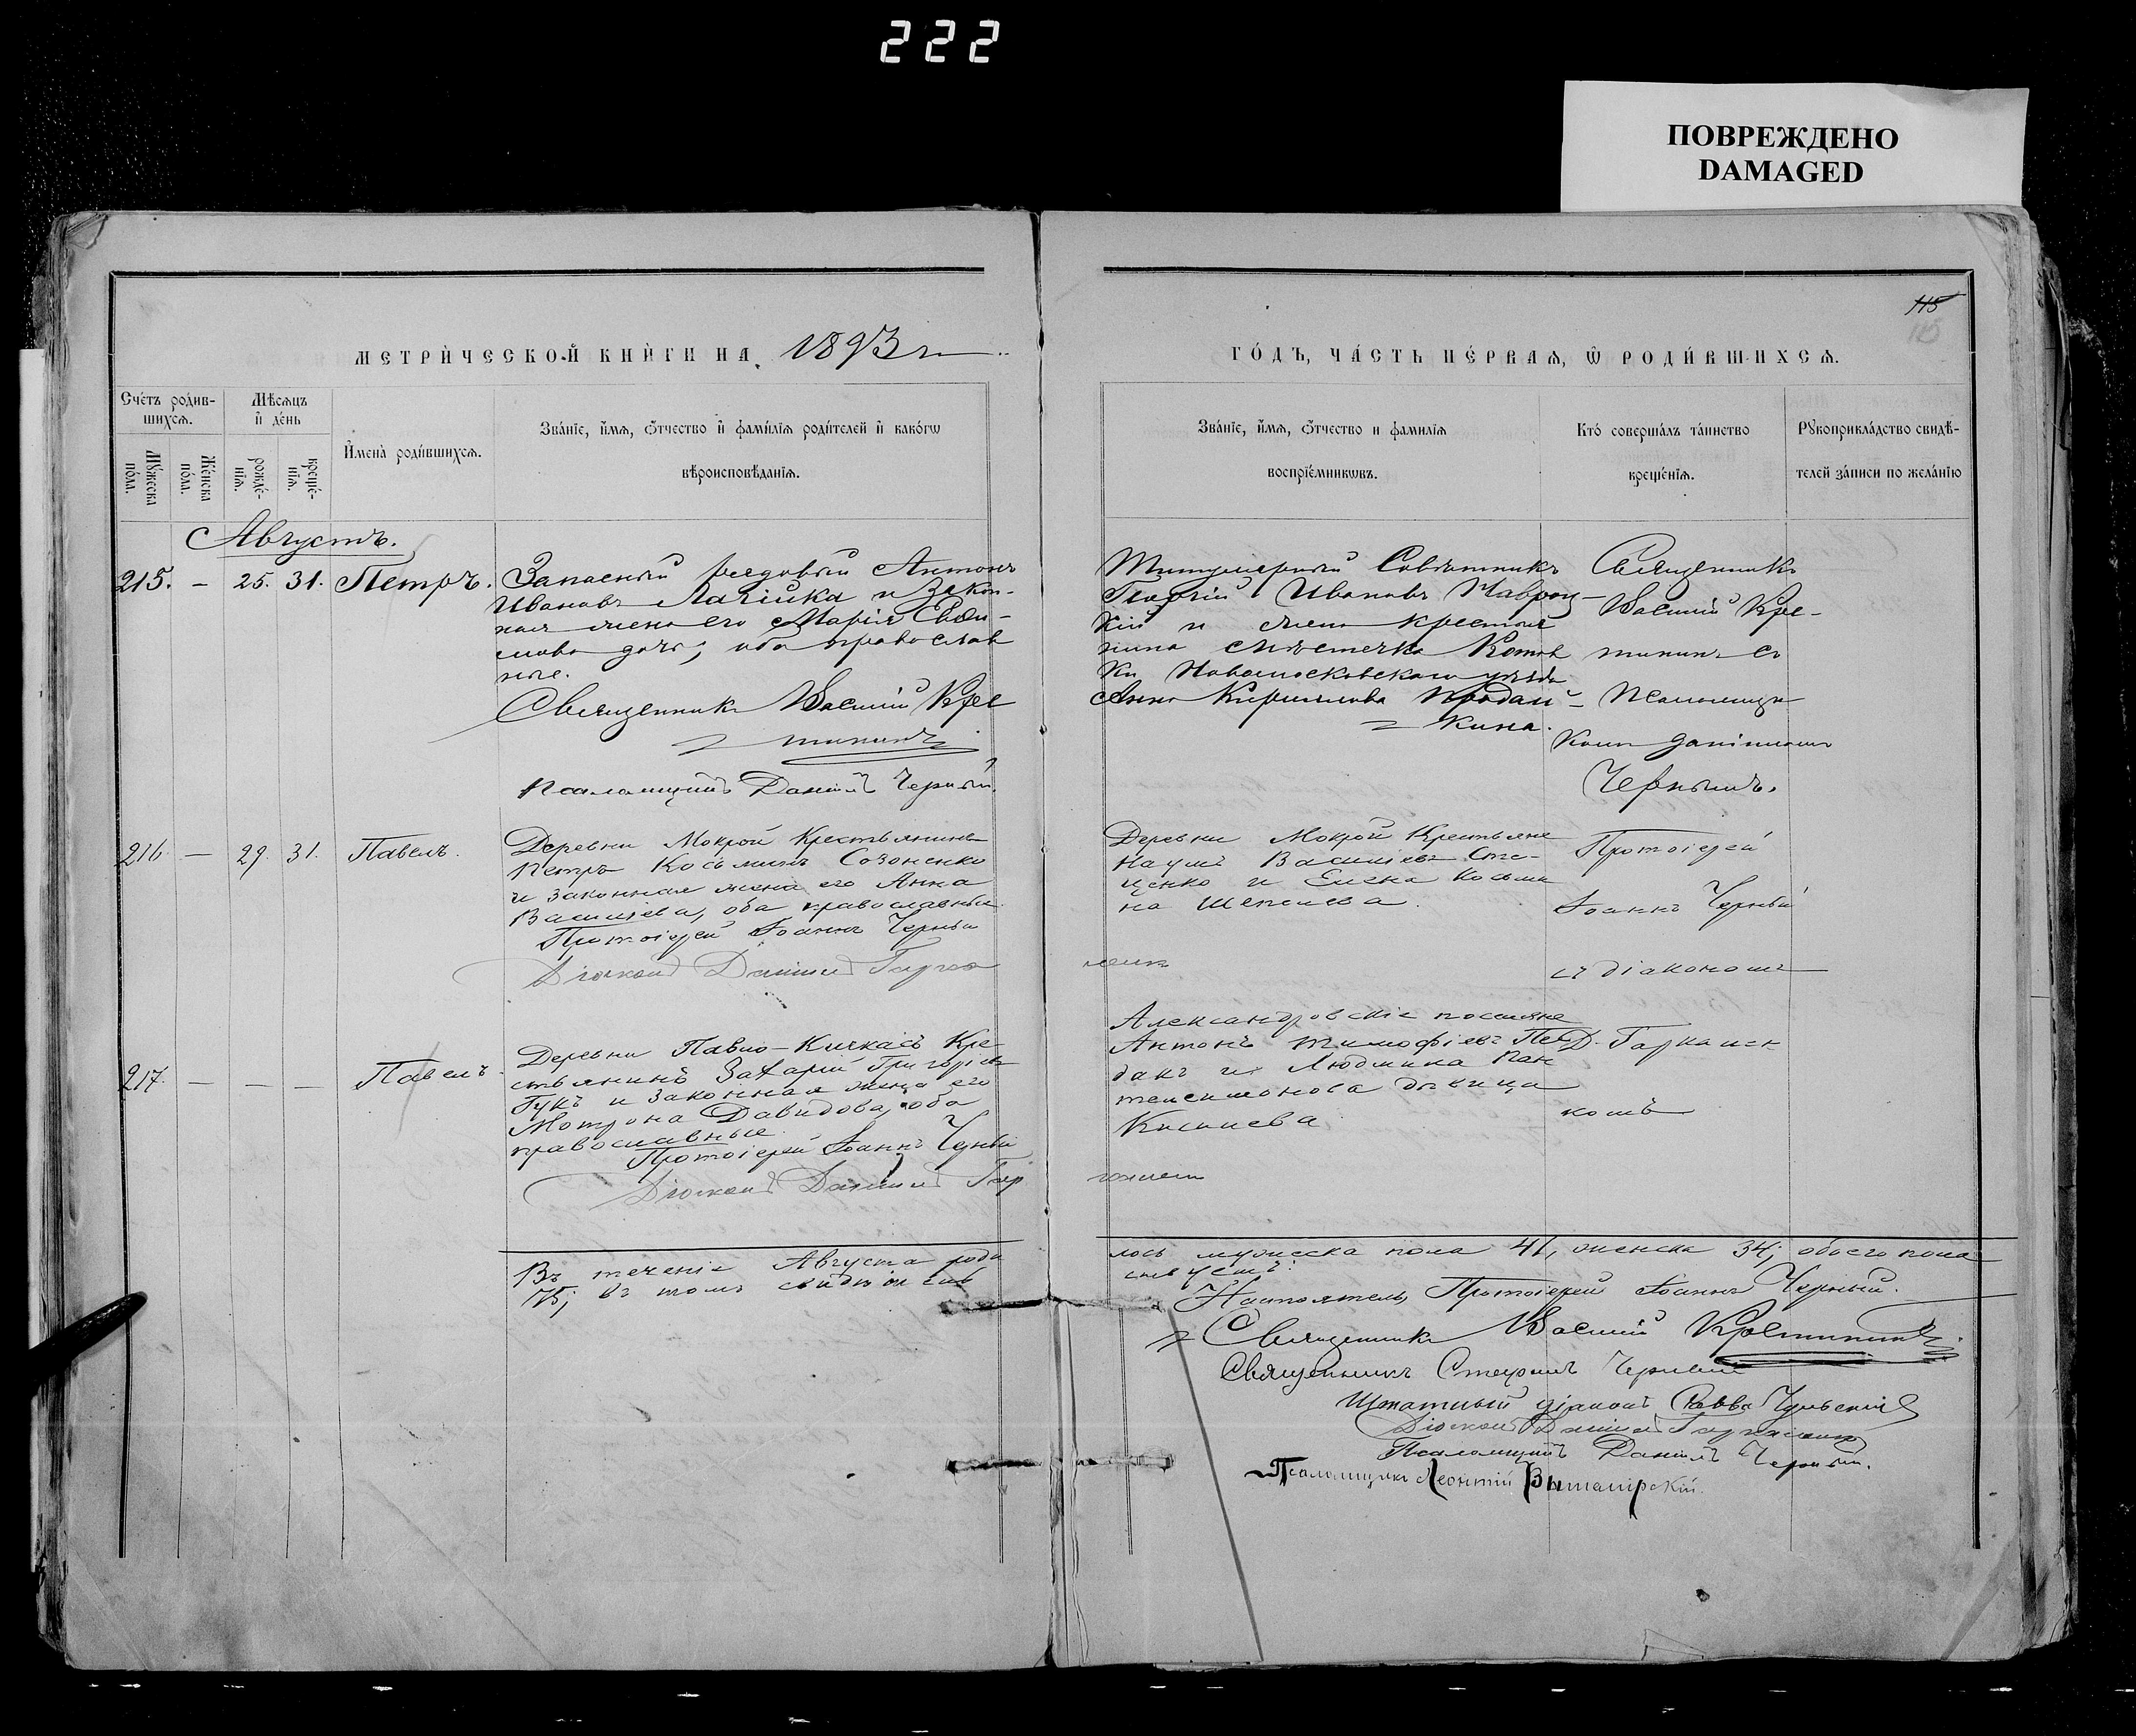 222
ПОВРЕЖДЕНО
DAMAGED
115
115
МЕТРИ́ЧЕСКОЙ КНИ́ГИ НА 1893 г.
ГО́ДЪ, ЧА́СТЬ ПЕ́РВАѦ, Ѡ РОДИ́ВШИХСѦ.
Сче́тъ роди́в-
шихсѧ.
Мѣ́сѧцъ
и҆ де́нь
И҆мена̀ роди́вшихсѧ.
Зва́нїе, и҆́мѧ, ѻ҆́тчество и҆ фами́лїѧ роди́телей и҆ како́гѡ
вѣроисповѣ́данїѧ.
Мꙋ́жеска
по́ла.
Же́нска
по́ла.
рожде́-
нїѧ.
креще́-
нїѧ.
Зва́нїе, и҆́мѧ, ѻ҆́тчество и фами́лїѧ
воспрїе́мникѡвъ.
Кто̀ соверша́лъ та́инство
креще́нїѧ.
Рꙋкоприкла́дство свидѣ́-
телей за́писи по жела́нїю
Августъ.
215. — 25. 31. Петръ.
Запасный рядовый Антонъ
Ивановъ и закон-
ная жена его Марія
дочь; оба православ
ные.
Священникъ Василій Кре
стининъ
Псаломщикъ Даніилъ Черный.
Титулярный Совѣтникъ
Георгій Ивановъ
кій и жена крестья
нина мѣстечка
ки Новомосковскаго уѣзда
Анна Кириллова
кина.
Священникъ
Василій Кре-
стининъ съ
Псаломщи
комъ Даніиломъ
Чернымъ.
216. — 29. 31. Павелъ.
Деревни Мокрой Крестьянинъ
Петръ Косьминъ Созоненко
и законная жена его Анна
Васильева, оба православные.
Протоіерей Іоаннъ Черный
Діаконъ Даніилъ Гарка
Деревни Мокрой Крестьяне
Наумъ Васильевъ Сте-
ценко и Елена Косьми
на Шепелева.
Протоіерей
Іоаннъ Черный
съ діакономъ
217. — — — Павелъ
Деревни Павло-Кичкасъ Кре-
стьянинъ Захарій Григорьевъ
Гукъ и законная жена его
Мотрона Давидова, оба
православные.
Протоіерей Іоаннъ Черный
Діаконъ Даніилъ Гар
Александровскіе поселяне
Антонъ Тимофѣевъ Пей
дакъ и Людмила Пан
телеимонова дѣвица
Киселева
Д. Гаркалин-
комъ
Въ теченіе Августа роди
лось мужеска пола 41, женска 34; обоего пола
75; въ томъ
Настоятель, Протоіерей Іоаннъ Черный.
Священникъ Василій Крестининъ.
Священникъ Стефанъ Черный
Штатный діаконъ Савва
Діаконъ Даніилъ
Псаломщикъ Даніилъ Черный.
Псаломщикъ Леонтій